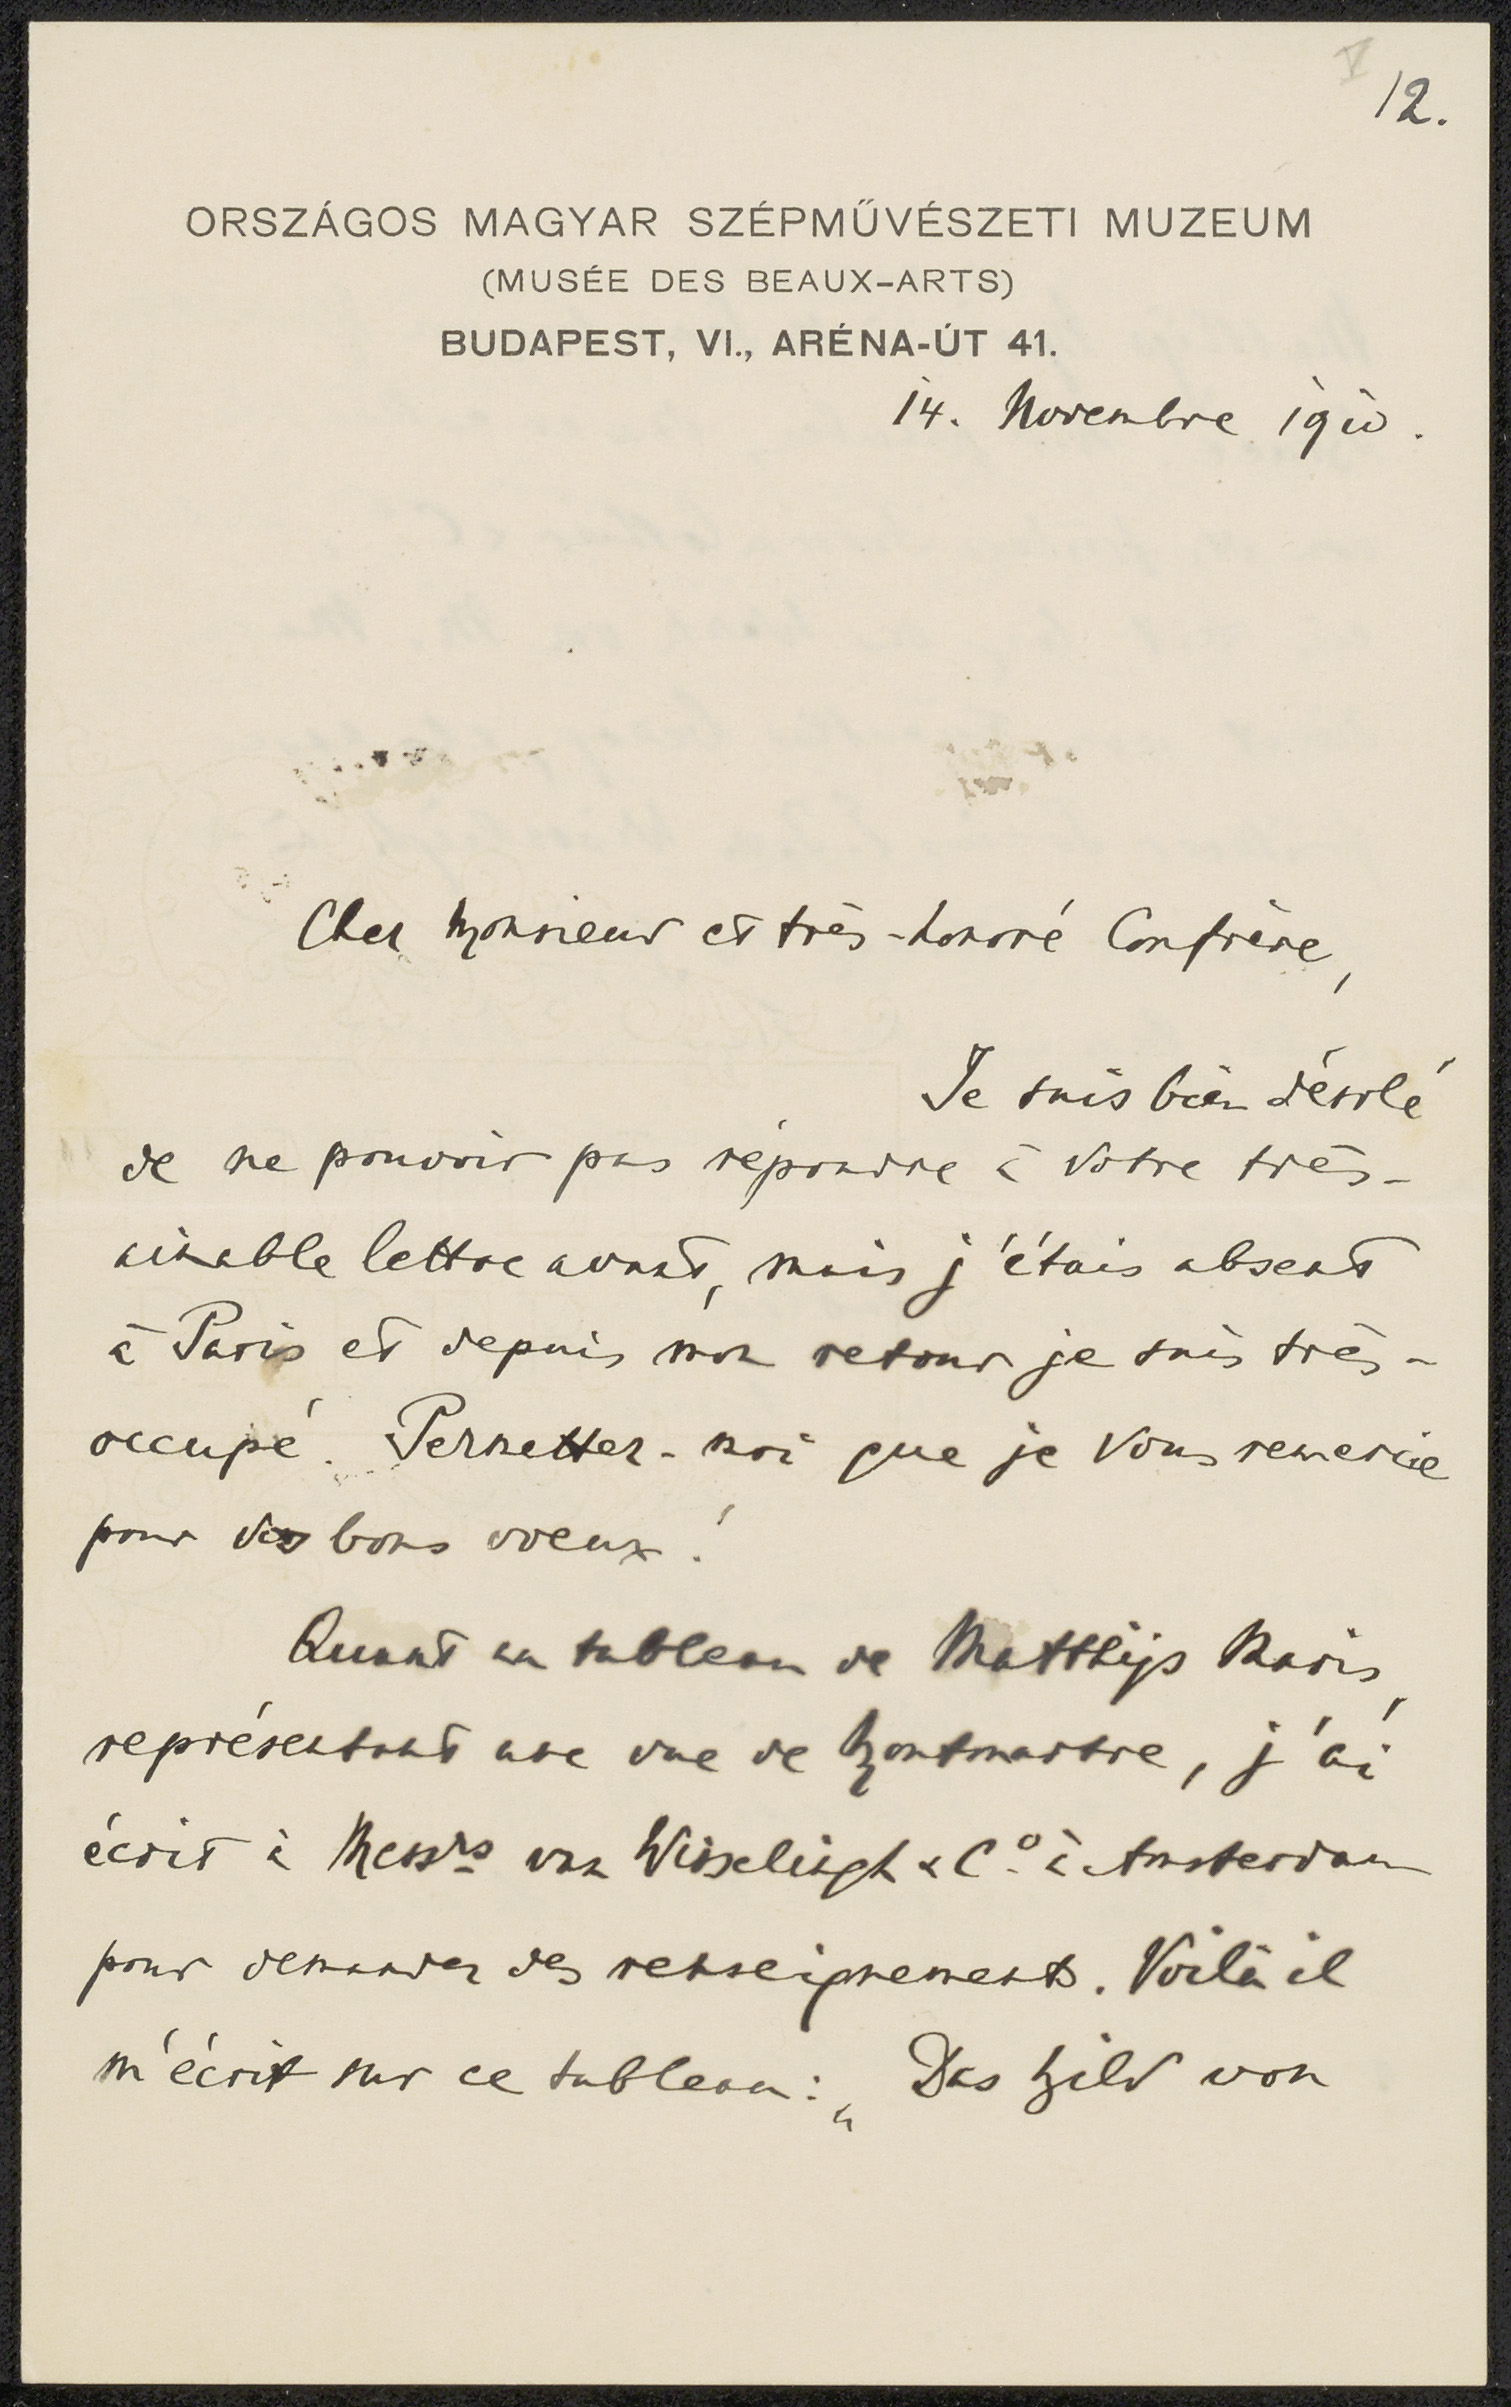 V
12.
ORSZÁGOS MAGYAR SZÉPMŰVÉSZETI MUZEUM
(MUSÉE DES BEAUX-ARTS)
BUDAPEST, VI., ARÉNA-ÚT 41.
14. Novembre 1910.
Cher Monsieur et très-honoré Confrère,
Je suis bien désolé
de ne pouvoir pas répondre à Votre très-
aimable lettre avant, mais j'étais absent
à Paris et depuis mon retour je suis très-
occupé. Permettez-moi que je Vous remercie
pour Vos bons voeux!
Quant au tableau de Matthijs Maris,
représentant une vue de Montmartre, j'ai
écrit à Messrs van Wisselingh & Co. à Amsterdam
pour demander des renseignements. Voilà il
m'écrit sur ce tableau: „Das Bild von